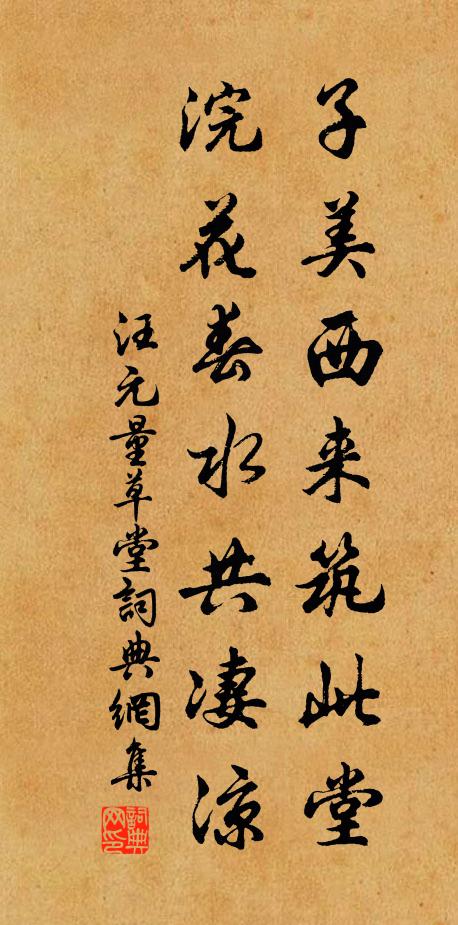 子美西来筑此堂
浣花春水共凄涼
汪元量草堂詞典網集
詞典网印